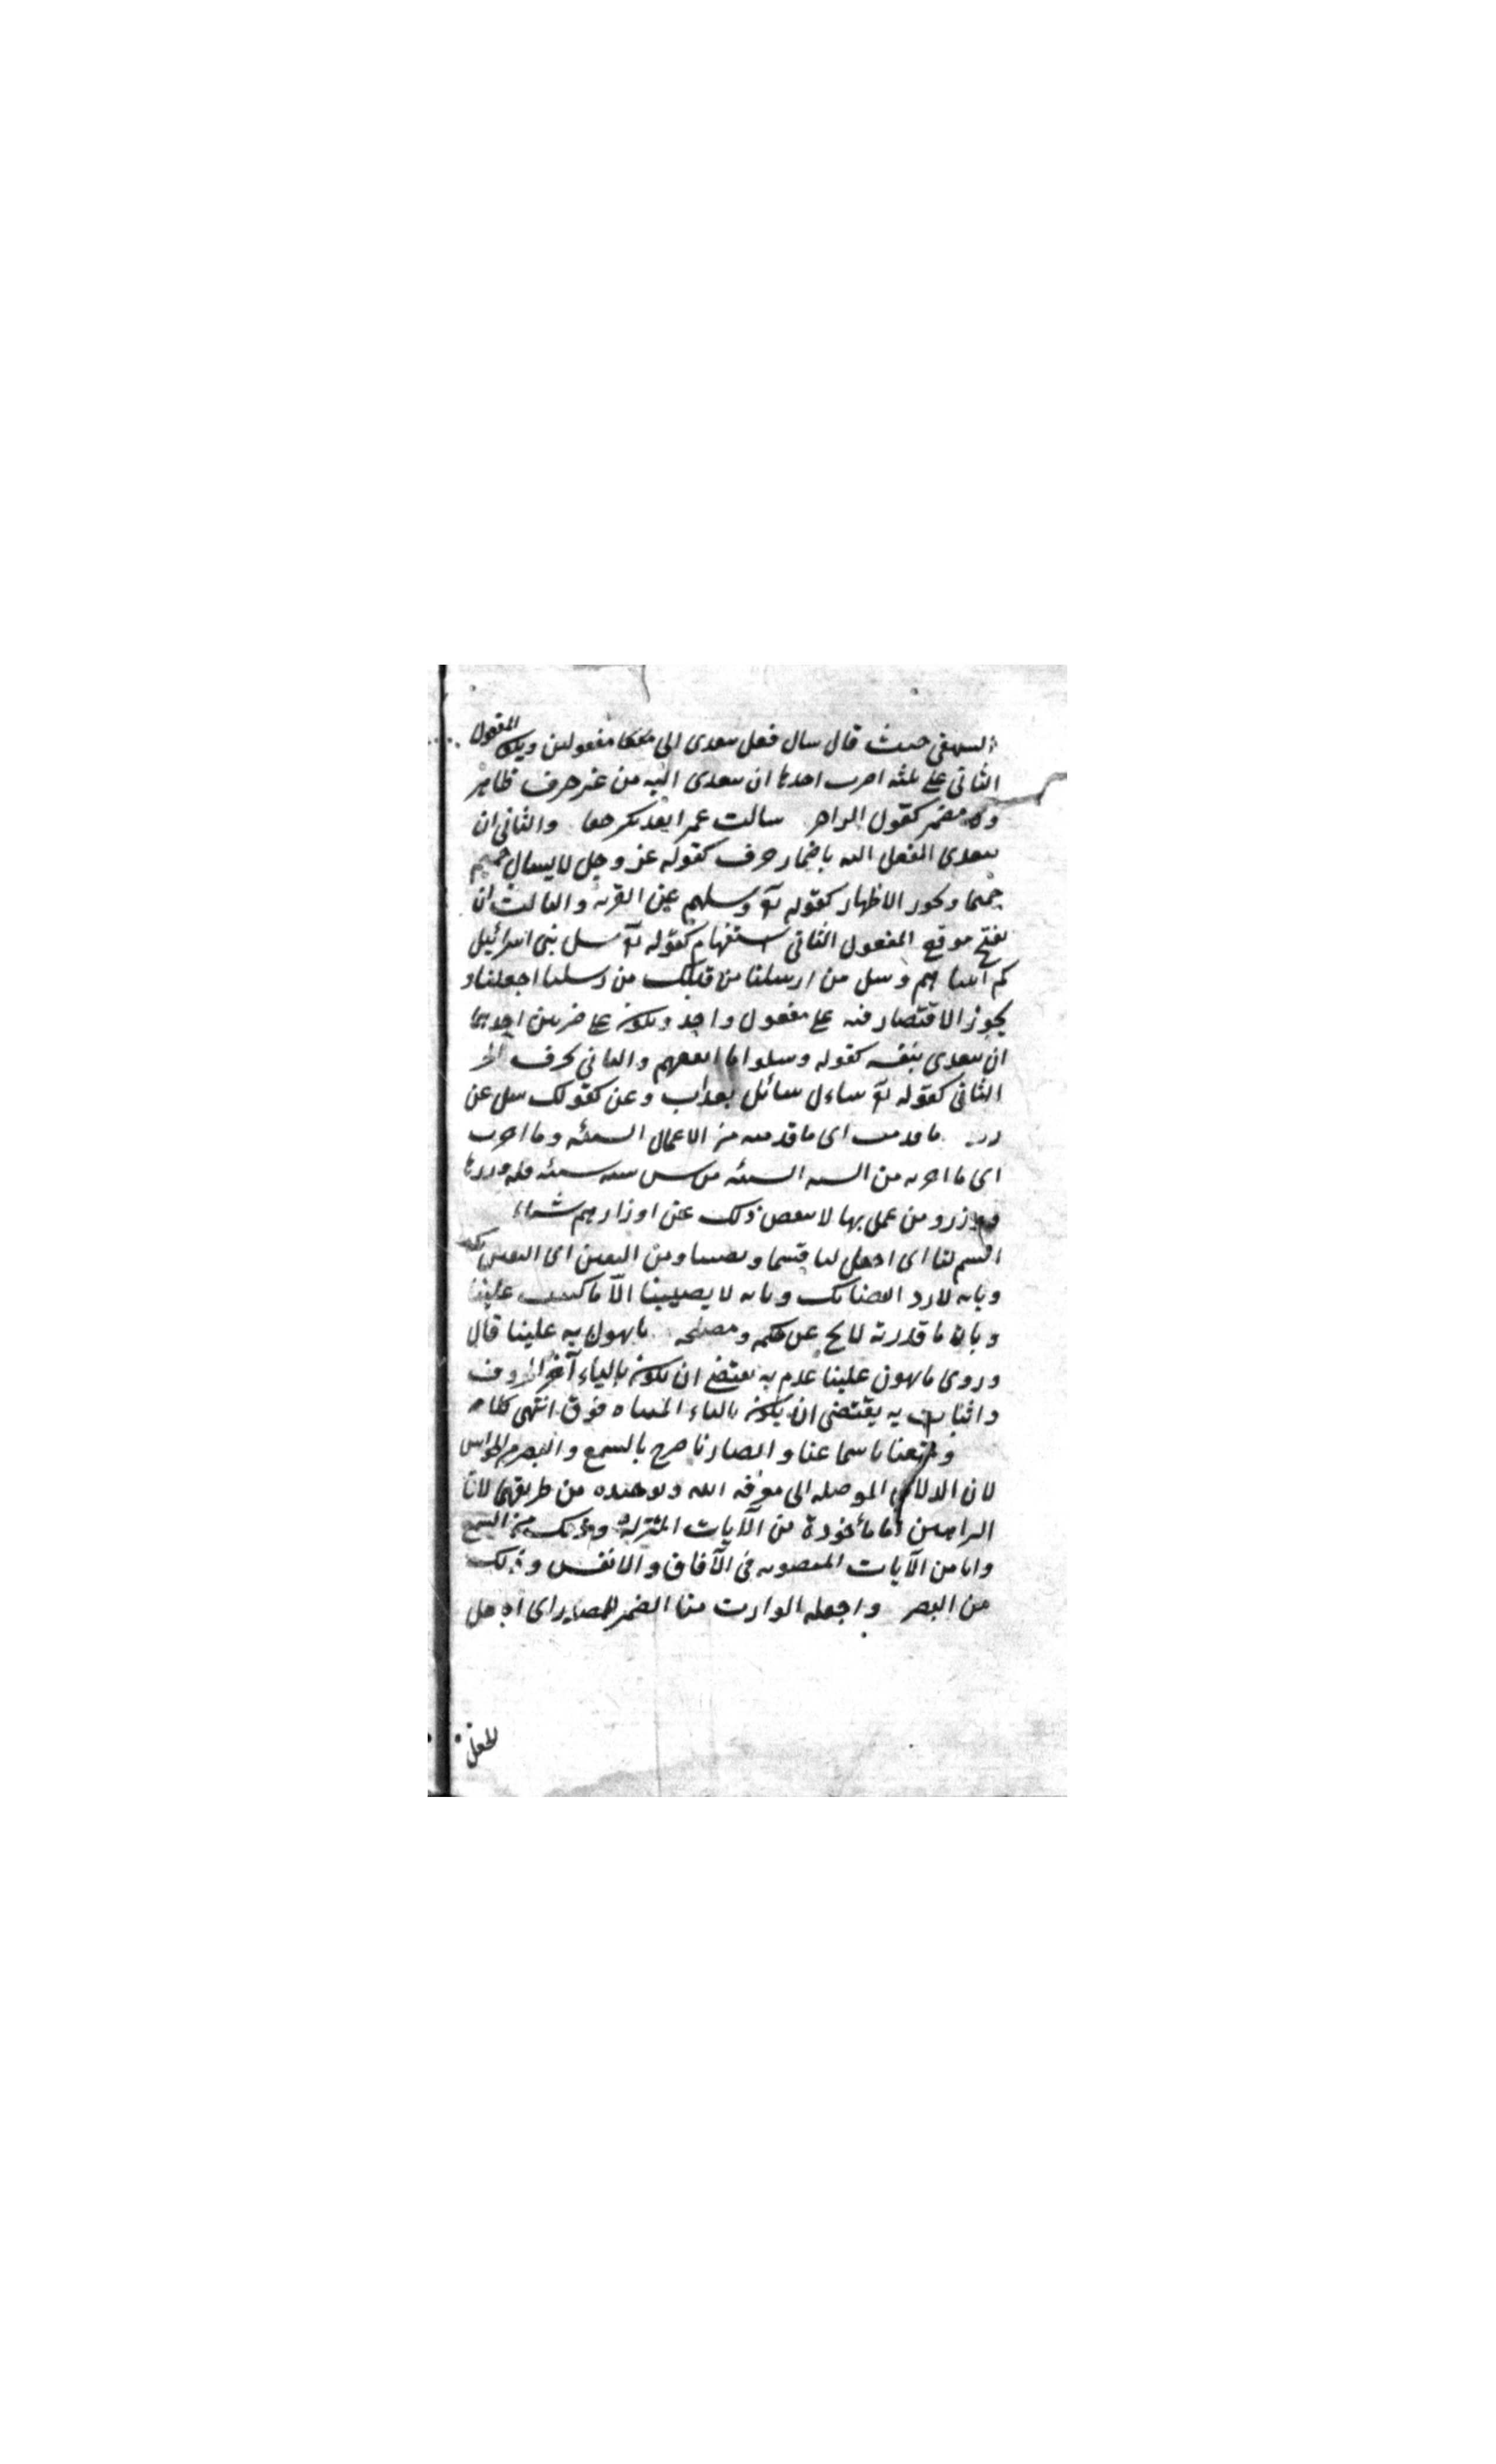 البيهقي حيث قال سال فعل يتعدى الى مفعولين ويكون المفعول
الثاني على ثلثه اضرب احدها ان يتعدى اليه من غير حرف ظاهر
ولا مضمر كقول الراجز سالت عمرا بعد بكر خفا والثاني ان
يتعدى الفعل اليه باضمار حرف كقوله عز وجل لا يسال حميم
حميما ويجوز الاظهار كقوله تع وسلهم عن القرية والثالث ان
يقع موقع المفعول الثاني استفهام كقوله تع سل بني اسرائيل
كم آتيناهم وسل من ارسلنا من قبلك من رسلنا اجعلنا و
يجوز الاقتصار فيه على مفعول واحد ويكون على ضربين احدهما
ان يتعدى بنفسه كقوله وسلوا ما انفقتم والثاني بحرف الجر
الثاني كقوله تع ساءل سائل بعذاب وعن كقولك سل عن
ما قدمت اى ما قدمته من الاعمال السيئه وما اخرت
اى ما اخرته من السنه السيئه من سن سنه سيئه فله وزرها
ووزر من عمل بها لا ينقص ذلك عن اوزارهم شيئا
اقسم لنا اى اجعل لنا قسما ونصيبا ومن اليقين اى اليقين بك
وبانه لا رد لقضائك وبانه لا يصيبنا الّا ما كتبت علينا
وبان ما قدرته لا يخ عن حكمه ومصلحه ما يهون به علينا قال
وروى ما يهون علينا عدم به يقتضى ان يكون بالياء آخر الحروف
واثبات به يقتضى ان يكون بالتاء المثناه فوق انتهى كلامه
ومتعنا باسماعنا وابصارنا بالسمع والبصر من الحواس
لان الدلائل الموصله الى معرفه الله وتوحيده من طريقهما لان
البراهين اما مأخوذة من الآيات المنزلة وذلك من السمع
واما من الآيات المنصوبه في الآفاق والانفس وذلك
من البصر واجعله الوارث منا الضمير للمصدر اى اجعل
الجعل